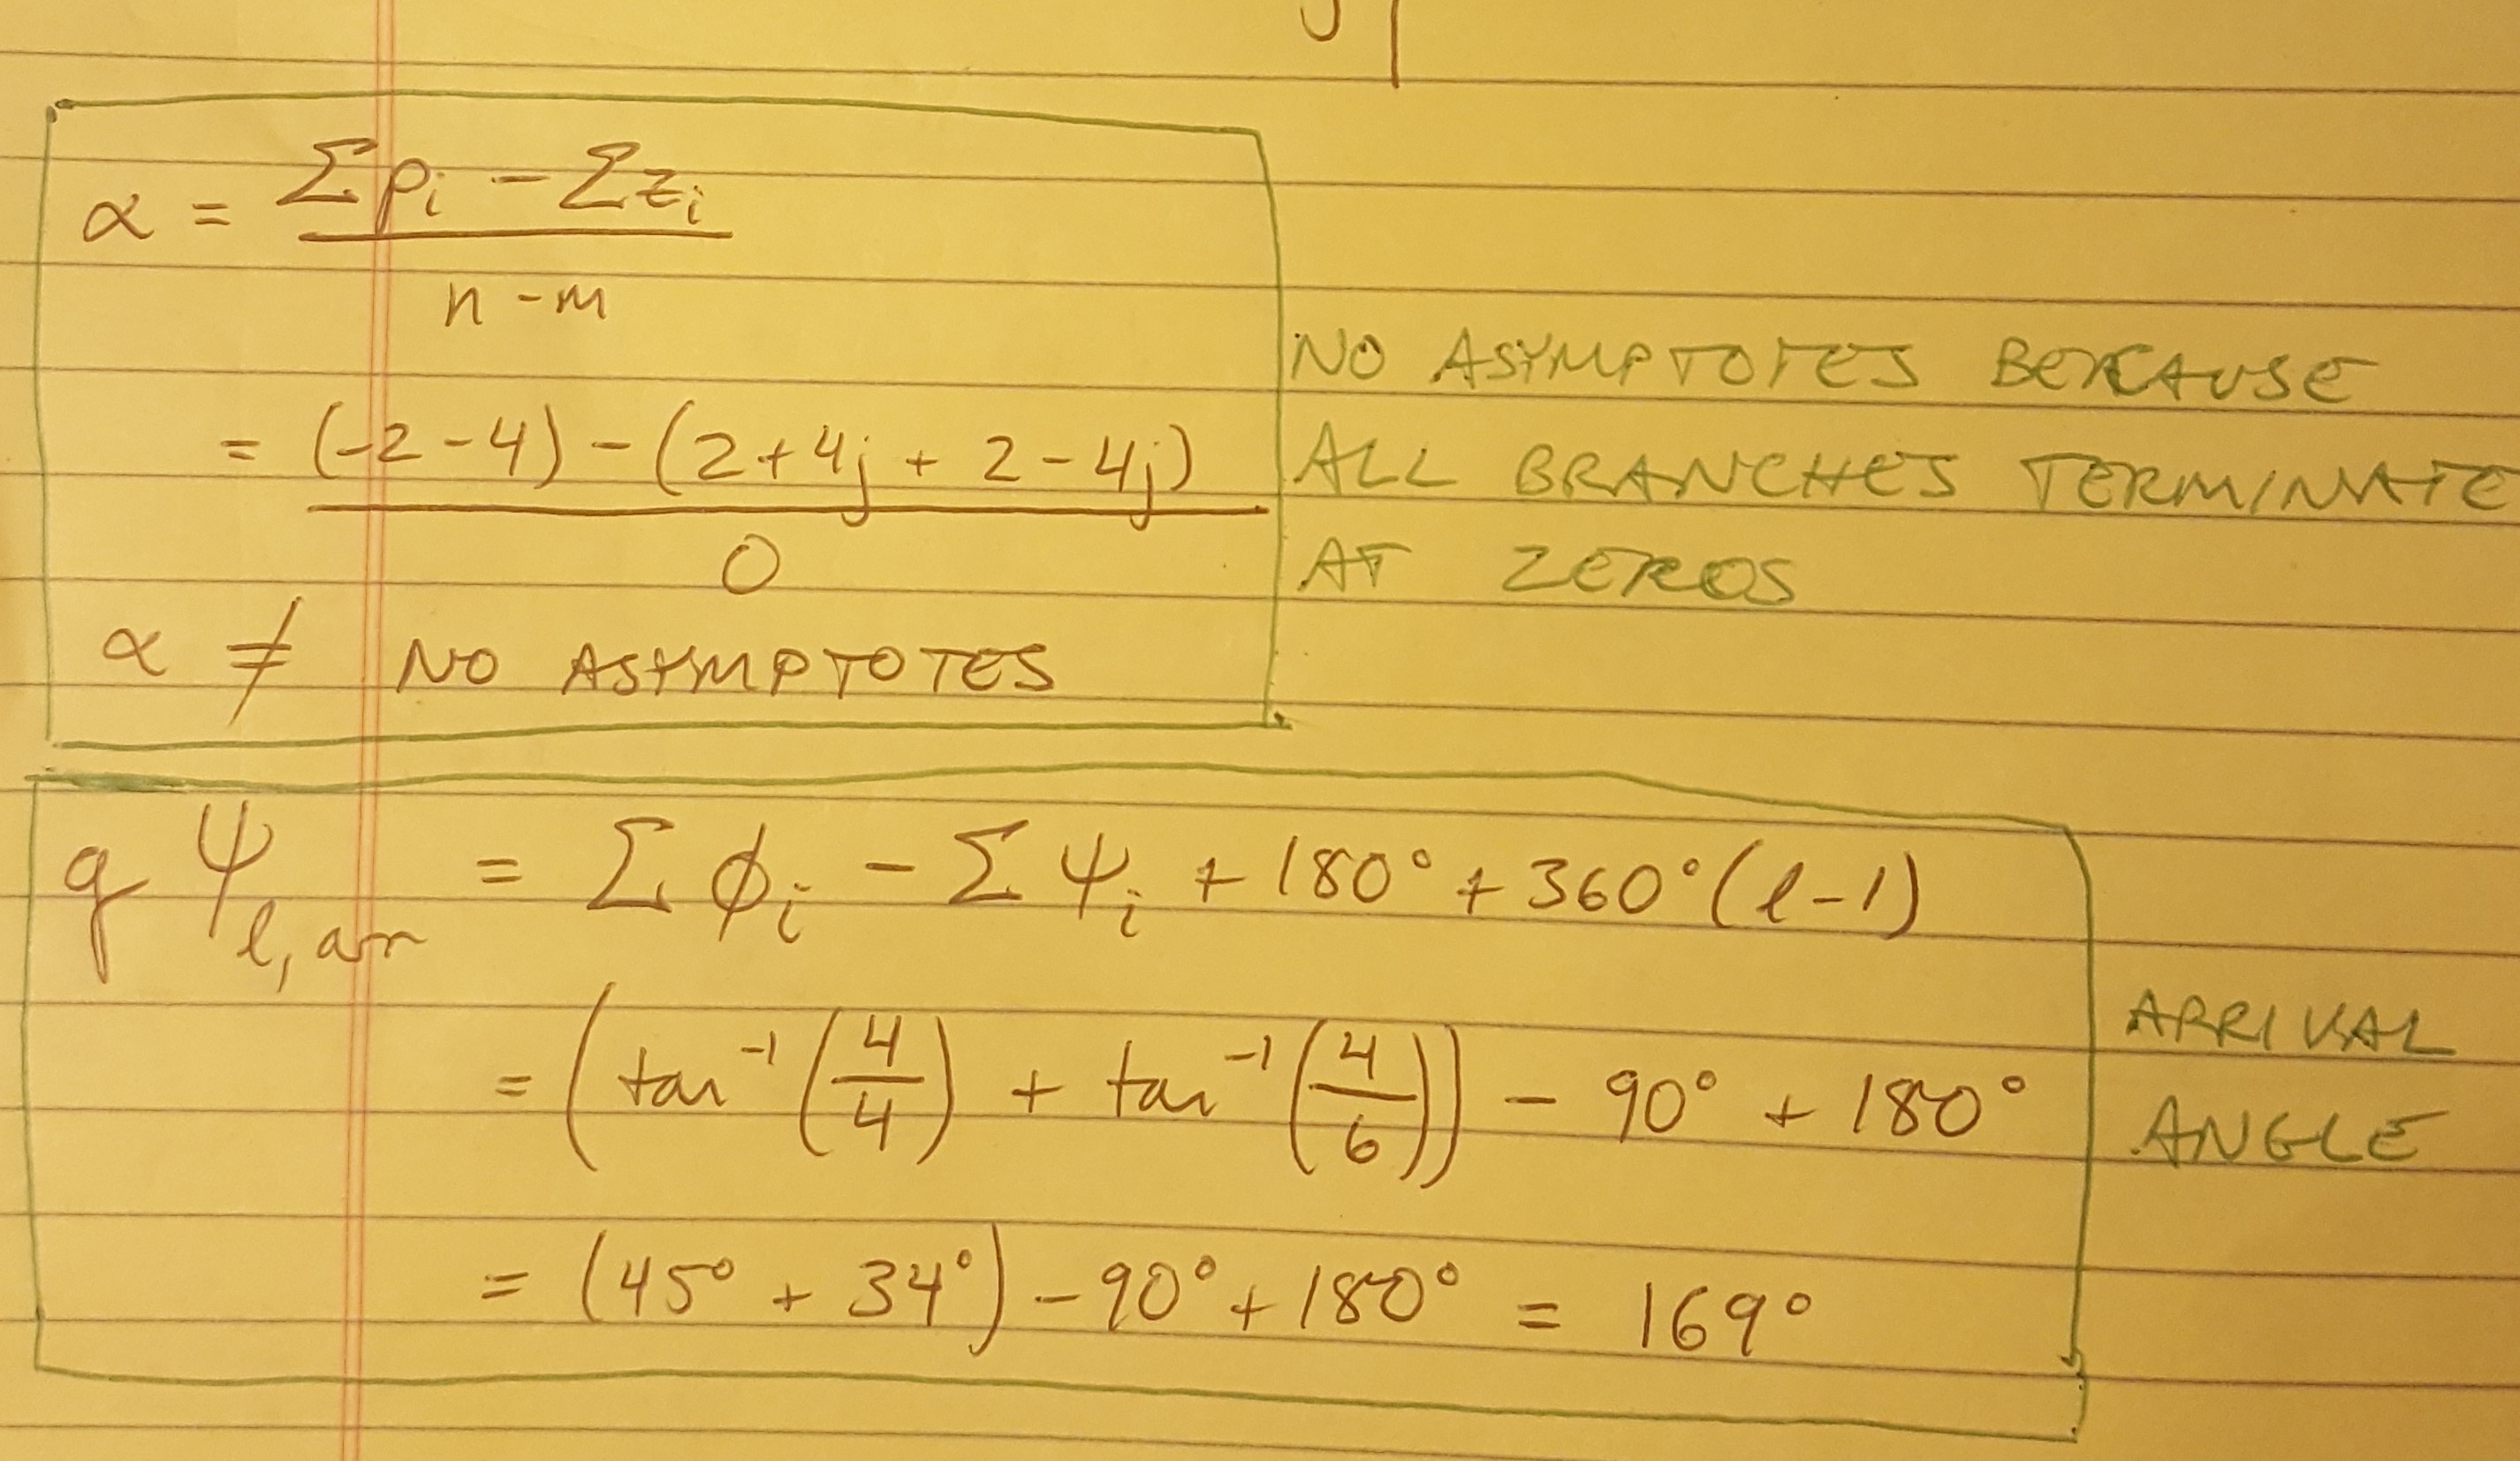 α = (Σpᵢ - Σzᵢ) / (n - m)
= ((-2 - 4) - (2 + 4j + 2 - 4j)) / 0
α ≠ NO ASYMPTOTES
NO ASYMPTOTES BECAUSE
ALL BRANCHES TERMINATE
AT ZEROS
q ψ_{l, arr} = Σ ϕᵢ - Σ ψᵢ + 180° + 360° (l - 1)
= (tan⁻¹(4/4) + tan⁻¹(4/6)) - 90° + 180°
= (45° + 34°) - 90° + 180° = 169°
ARRIVAL
ANGLE